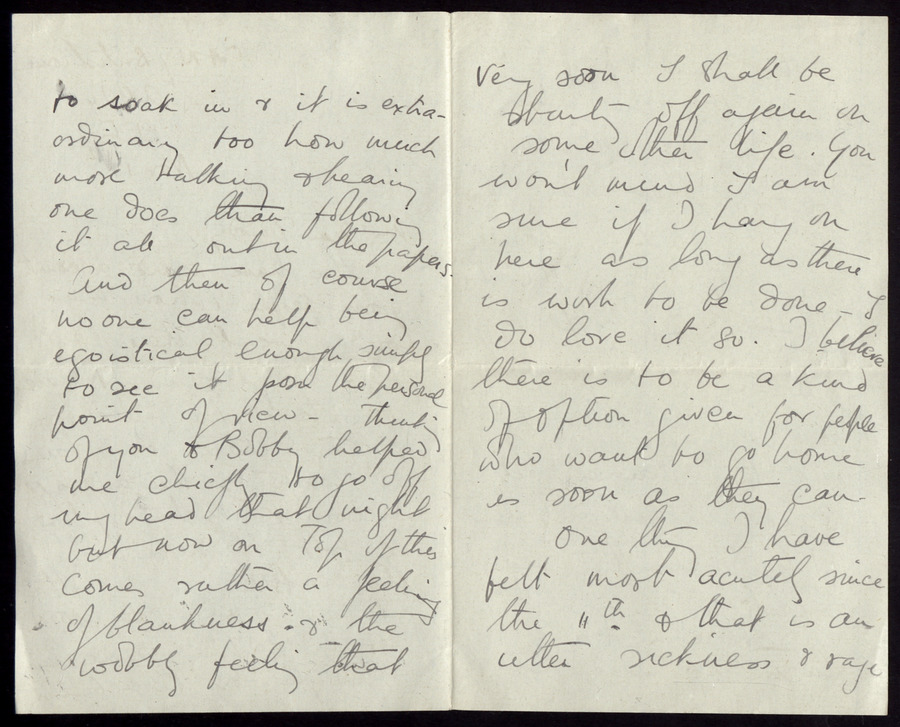 to soak in & it is extra-
ordinary too how much
more talking & hearing
one does than following
it all out in the papers.
And then of course
no one can help being
egoistical enough simply
to see it from the personal
point of view - thinking
of you & Bobby helped
me chiefly to go off
my head that night
but now on Top of this
comes rather a feeling
of blankness - & the
wobbly feeling that
very soon I shall be
starting off again on
some other life. You
won't mind I am
sure if I hang on
here as long as there
is work to be done - I
do love it so. I believe
there is to be a kind
of option given for people
who want to go home
as soon as they can.
One thing I have
felt most acutely since
the 11th & that is an
utter sickness & rage